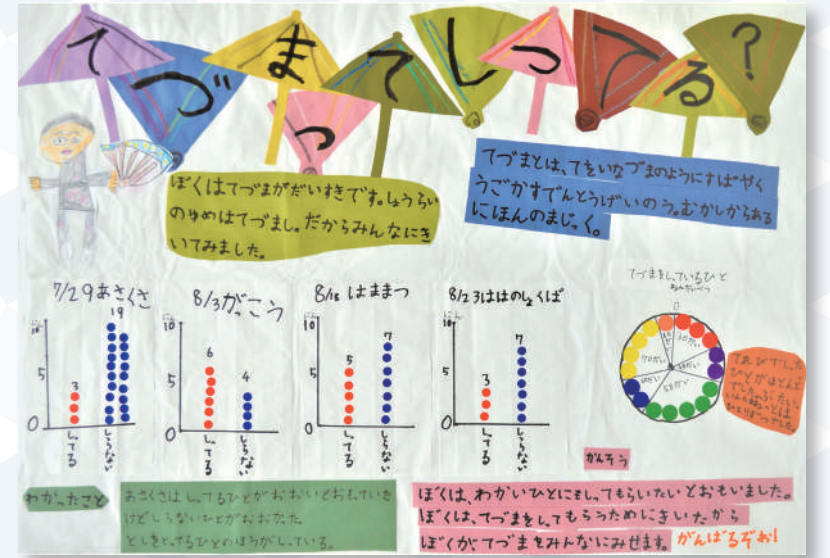 てづまってしってる?
ぼくはてづまがだいすきです。しょうらい
のゆめはてづまし。だからみんなにき
いてみました。
てづまとは、てをいなづまのようにすばやく
うごかすでんとうげいのう。むかしからある
にほんのまじっく。
7/29あさくさ
19
10
5
0
3
しってる
しらない
8/3がっこう
10
5
0
6
4
しってる
しらない
8/18 はままつ
10
5
0
5
7
しってる
しらない
8/23ははのしょくば
10
5
0
3
7
しってる
しらない
てづまをしっているひと
0
70だい
50だい
てれびでみた
ひとがほとんど
でした。ぶたい、
ひとりずつでした。
わかったこと
あさくさは しってるひとがおおいとおもっていた
けどしらないひとがおおかった
としをとってるひとのほうがしっている。
かんそう
ぼくは、わかいひとにもしってもらいたいとおもいました。
ぼくは、てづまをしってもらうためにきいたから
ぼくがてづまをみんなにみせます。がんばるぞお!